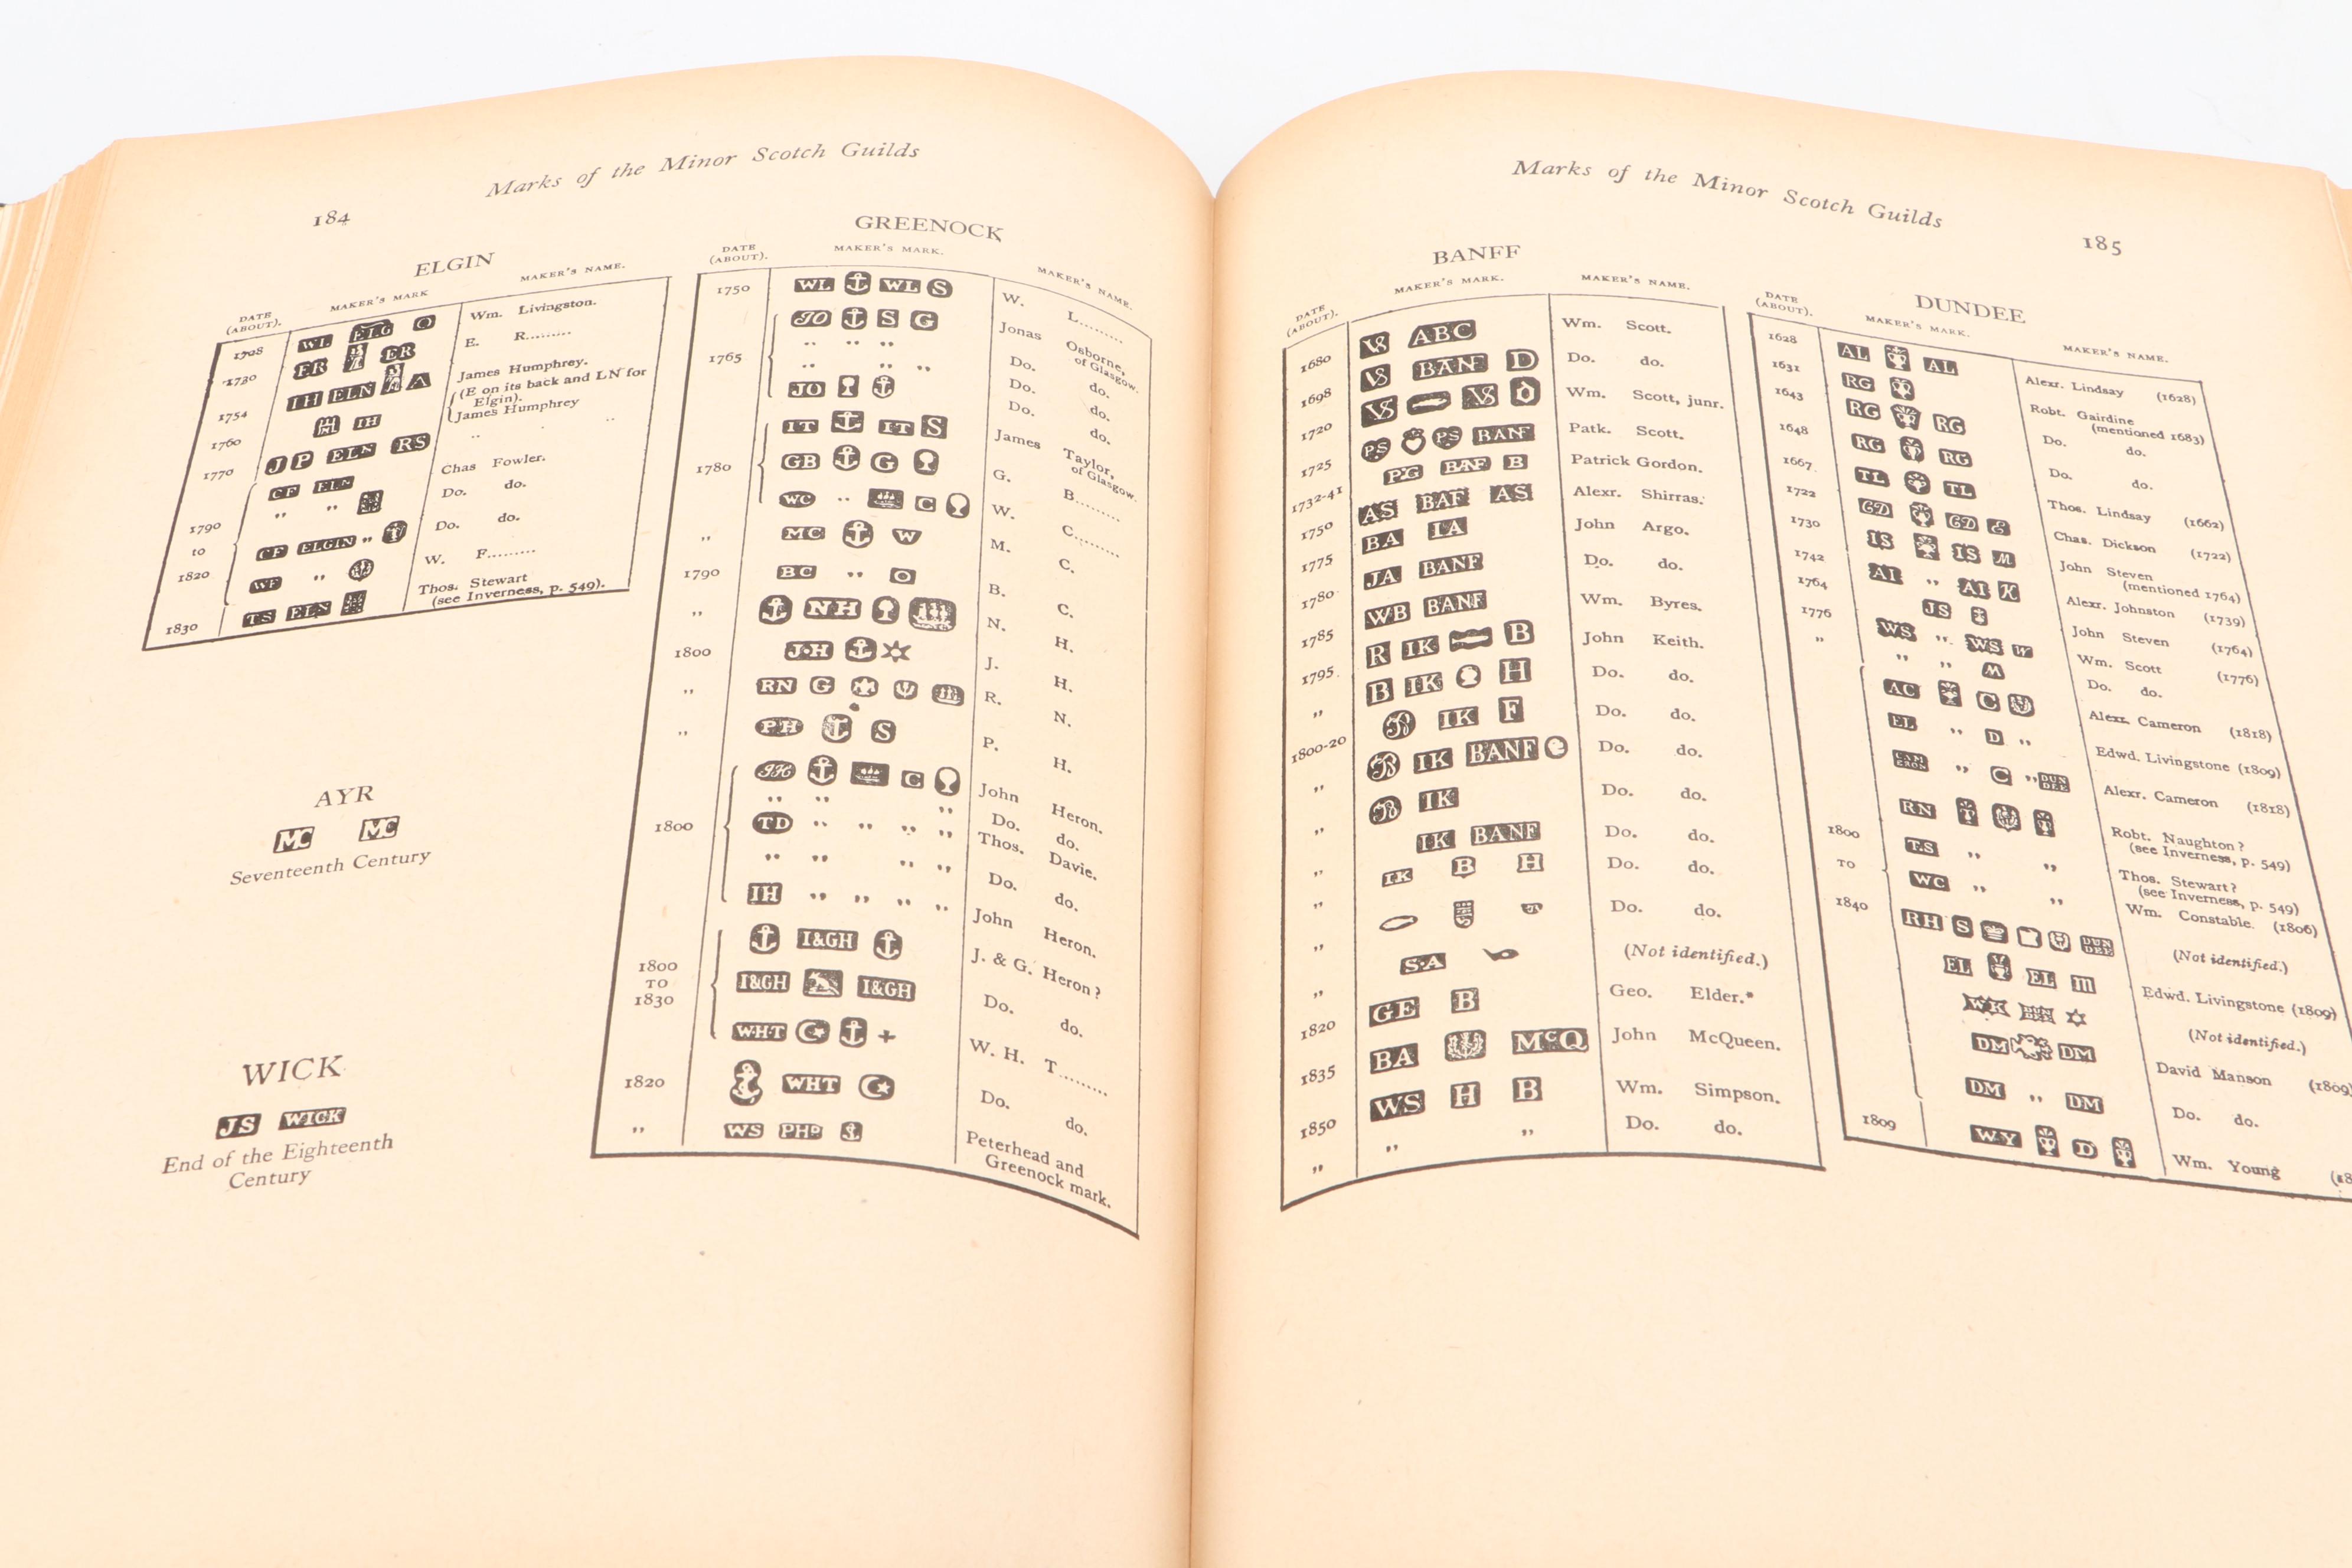 Marks of the Minor Scotch Guilds
184
ELGIN
DATE (ABOUT). MAKER'S MARK MAKER'S NAME.
WL ELG O Wm. Livingston.
1730 ER ER E. R.........
1754 IH ELN A James Humphrey. (E on its back and LN for Elgin).
1760 IH James Humphrey
1770 J P ELN RS ,, ,,
CF ELN Chas Fowler.
,, ,, Do. do.
1790 to 1820
CF ELGIN ,, Do. do.
WF ,, W. F.........
1830 TS ELN Thos. Stewart (see Inverness, p. 549).
AYR
MC MC
Seventeenth Century
WICK
JS WICK
End of the Eighteenth
Century
GREENOCK
DATE (ABOUT). MAKER'S MARK. MAKER'S NAME.
1750 WL WL S W. L.........
JO S G Jonas Osborne, of Glasgow.
1765 ,, ,, ,, Do. do.
,, ,, ,, Do. do.
JO Do. do.
IT IT S James Taylor, of Glasgow.
1780 GB G G. B.........
WC ,, C W. C.........
,, MC W M. C.
1790 BC ,, O B. C.
,, NH N. H.
1800 J·H J. H.
,, RN G R. N.
,, PH S P. H.
JH C John Heron.
,, ,, ,, Do. do.
1800 TD ,, ,, ,, ,, Thos. Davie.
,, ,, ,, ,, Do. do.
IH ,, ,, ,, ,, John Heron.
I&GH J. & G. Heron?
1800 TO 1830 I&GH I&GH Do. do.
W·H·T W. H. T.........
1820 WHT Do. do.
,, WS PHD Peterhead and Greenock mark.
Marks of the Minor Scotch Guilds
185
BANFF
DATE (ABOUT). MAKER'S MARK. MAKER'S NAME.
1680 VS ABC Wm. Scott.
1698 VS BANF D Do. do.
1720 VS VS D Wm. Scott, junr.
1725 PS PS BANF Patk. Scott.
1732-41 PG BAF B Patrick Gordon.
1750 AS BAF AS Alexr. Shirras.
1775 BA IA John Argo.
1780 JA BANF Do. do.
1785 WB BANF Wm. Byres.
1795 R IK B John Keith.
,, B IK H Do. do.
1800-20 B IK F Do. do.
,, B IK BANF Do. do.
,, B IK Do. do.
,, IK BANF Do. do.
,, IK B H Do. do.
,, Do. do.
,, S·A (Not identified.)
1820 GE B Geo. Elder.*
1835 BA McQ John McQueen.
1850 WS H B Wm. Simpson.
,, ,, ,, Do. do.
DUNDEE
DATE (ABOUT). MAKER'S MARK. MAKER'S NAME.
1628 AL AL Alexr. Lindsay (1628)
1631 RG Robt. Gairdine (mentioned 1683)
1643 RG RG Do. do.
1648 RG RG Do. do.
1667 TL TL Thos. Lindsay (1662)
1722 CD CD E Chas. Dickson (1722)
1730 IS IS M John Steven (mentioned 1764)
1742 AI ,, AI K Alexr. Johnston (1739)
1764 JS John Steven (1764)
1776 WS ,, WS W Wm. Scott (1776)
,, ,, ,, M Do. do.
AC C Alexr. Cameron (1818)
EL ,, D ,, Edwd. Livingstone (1809)
CAMERON ,, C ,, DUNDEE Alexr. Cameron (1818)
RN Robt. Naughton? (see Inverness, p. 549)
1800 TO 1840
T.S ,, ,, Thos. Stewart? (see Inverness, p. 549)
WC ,, ,, Wm. Constable. (1806)
RH S DUNDEE (Not identified.)
EL EL m Edwd. Livingstone (1809)
WK (Not identified.)
DM DM David Manson (1809)
DM ,, DM Do. do.
1809 WY D Wm. Young